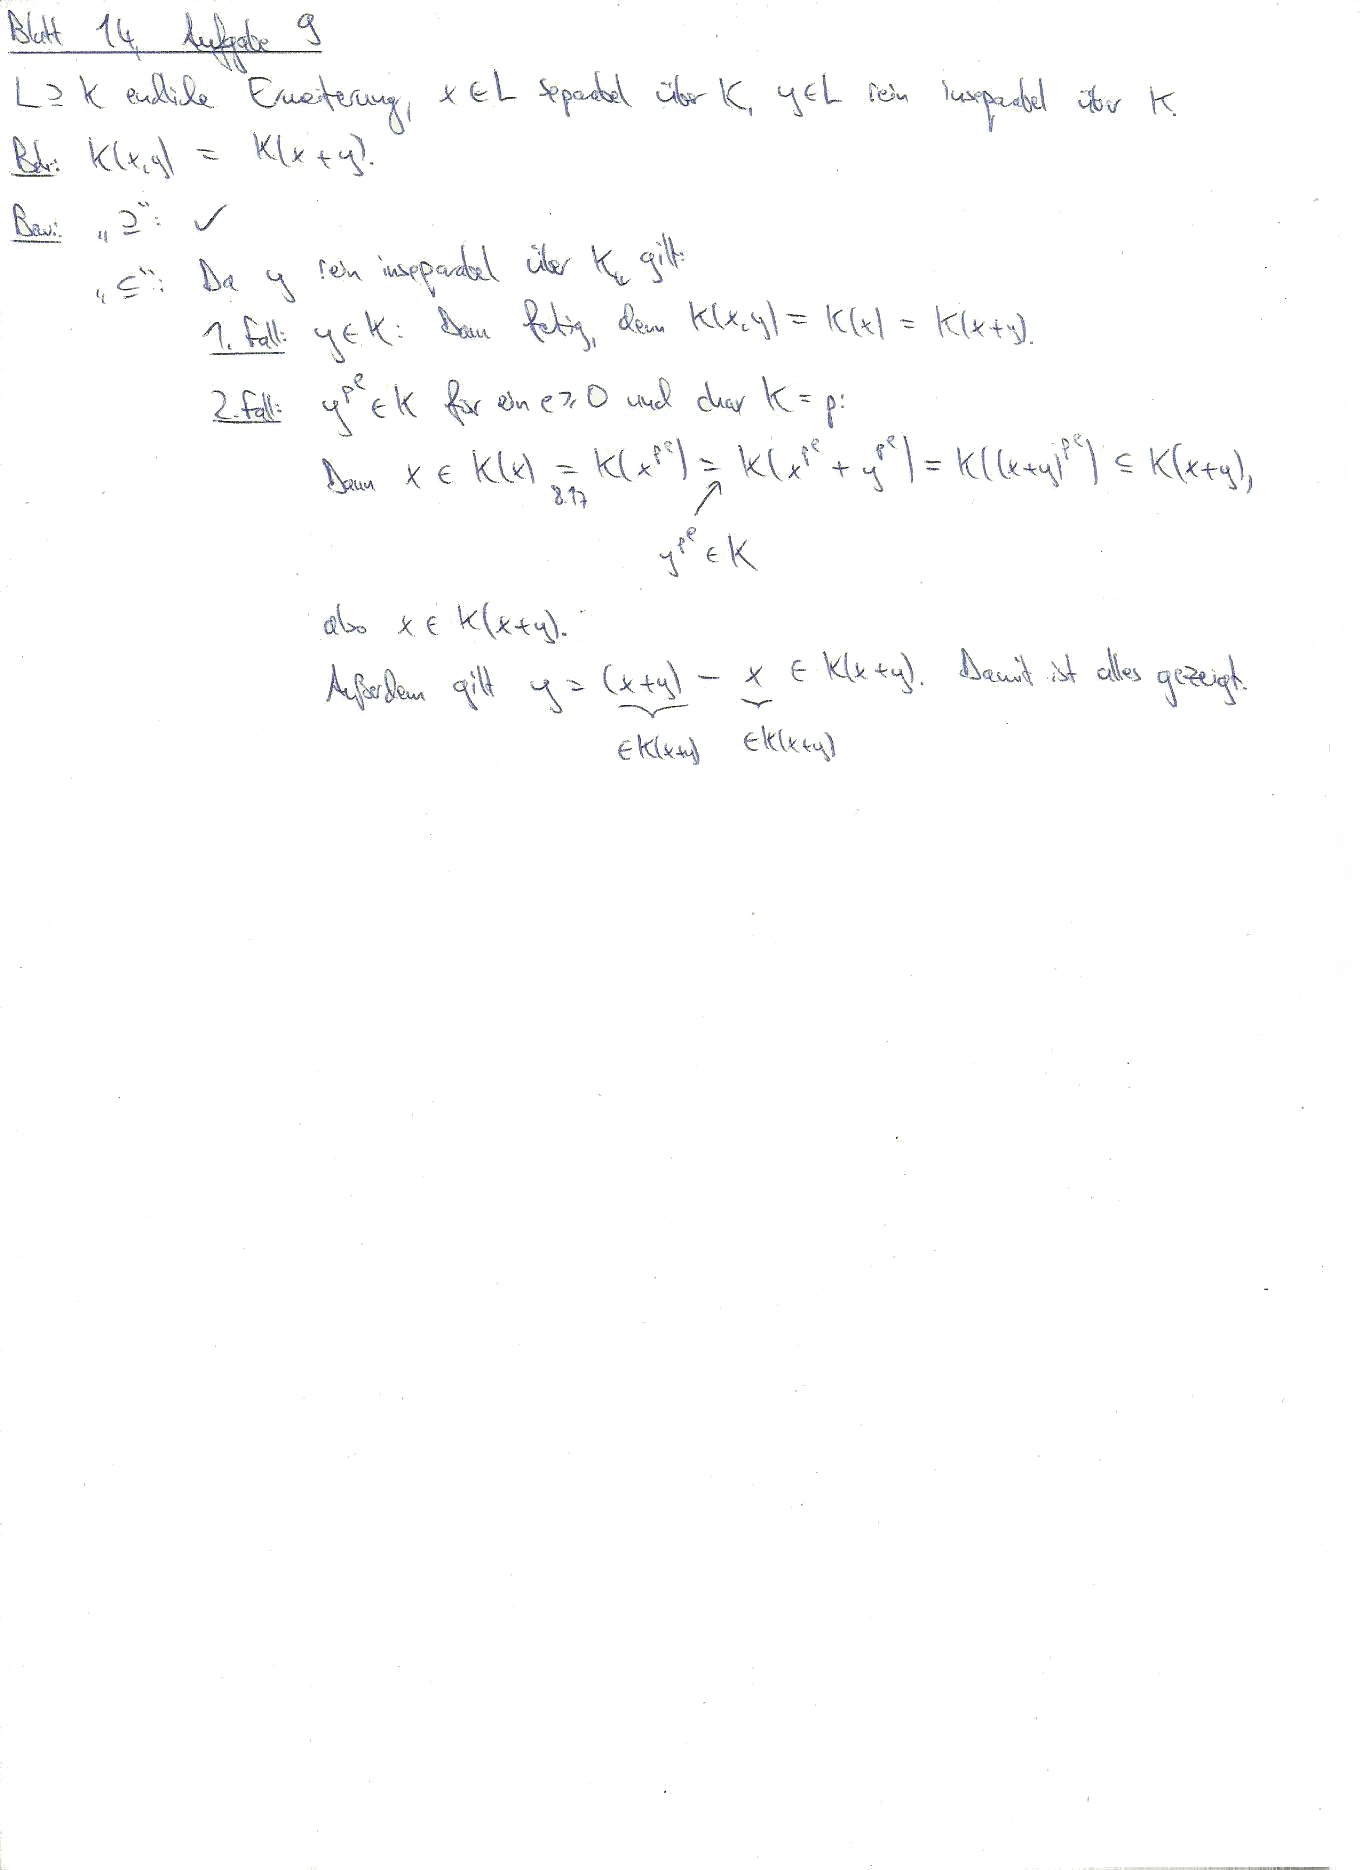 Blatt 14, Aufgabe 9
L ⊇ K endliche Erweiterung, x ∈ L separabel über K, y ∈ L rein inseparabel über K.
Beh: K(x,y) = K(x+y).
Bew: „⊇": ✓
„⊆": Da y rein inseparabel über K, gilt:
1. Fall: y ∈ K: Dann fertig, denn K(x,y) = K(x) = K(x+y).
2. Fall: y^{p^e} ∈ K für ein e ≥ 0 und char K = p:
Dann x ∈ K(x) = K(x^{p^e}) = K(x^{p^e} + y^{p^e}) = K((x+y)^{p^e}) ⊆ K(x+y),
8.17
y^{p^e} ∈ K
also x ∈ K(x+y).
Außerdem gilt y = (x+y) − x ∈ K(x+y). Damit ist alles gezeigt.
∈ K(x+y) ∈ K(x+y)